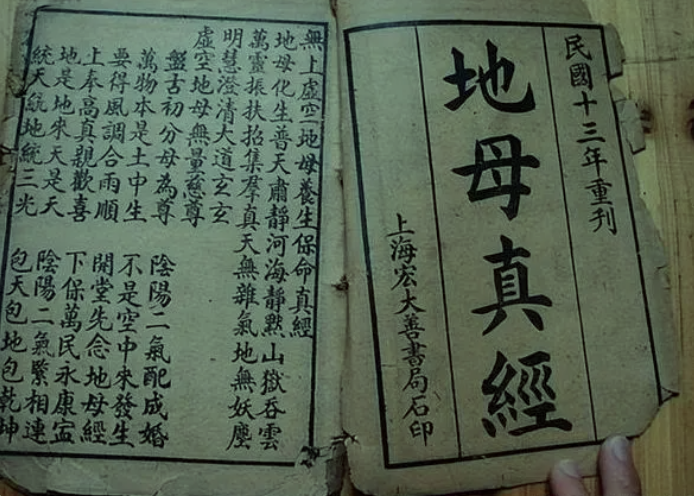 民國十三年重刊
地母真經
上海宏大善書局石印
無上虛空地母養生保命真經
地母化生普天肅靜河海靜默山嶽吞雲
萬靈振扶招集羣真天無雜氣地無妖塵
明慧澄清大道玄玄
虛空地母無量慈尊
盤古初分母為尊 陰陽二氣配成婚
萬物本是土中生 不是空中來發生
要得風調合雨順 開堂先念地母經
上奉高真親歡喜 下保萬民永康寍
地是地來天是天 陰陽二氣緊相連
統天統地統三光 包天包地包乾坤